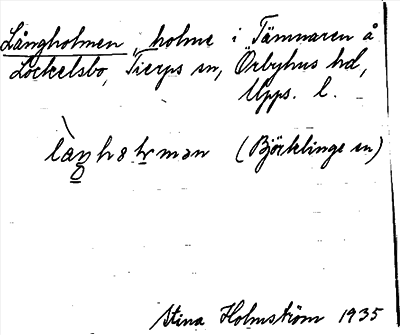 Långholmen, holme i Tämnaren å
Lockelsbo, Tierps sn, Örbyhus hd,
Upps. l.
(Björklinge sn)
Stina Holmström 1935